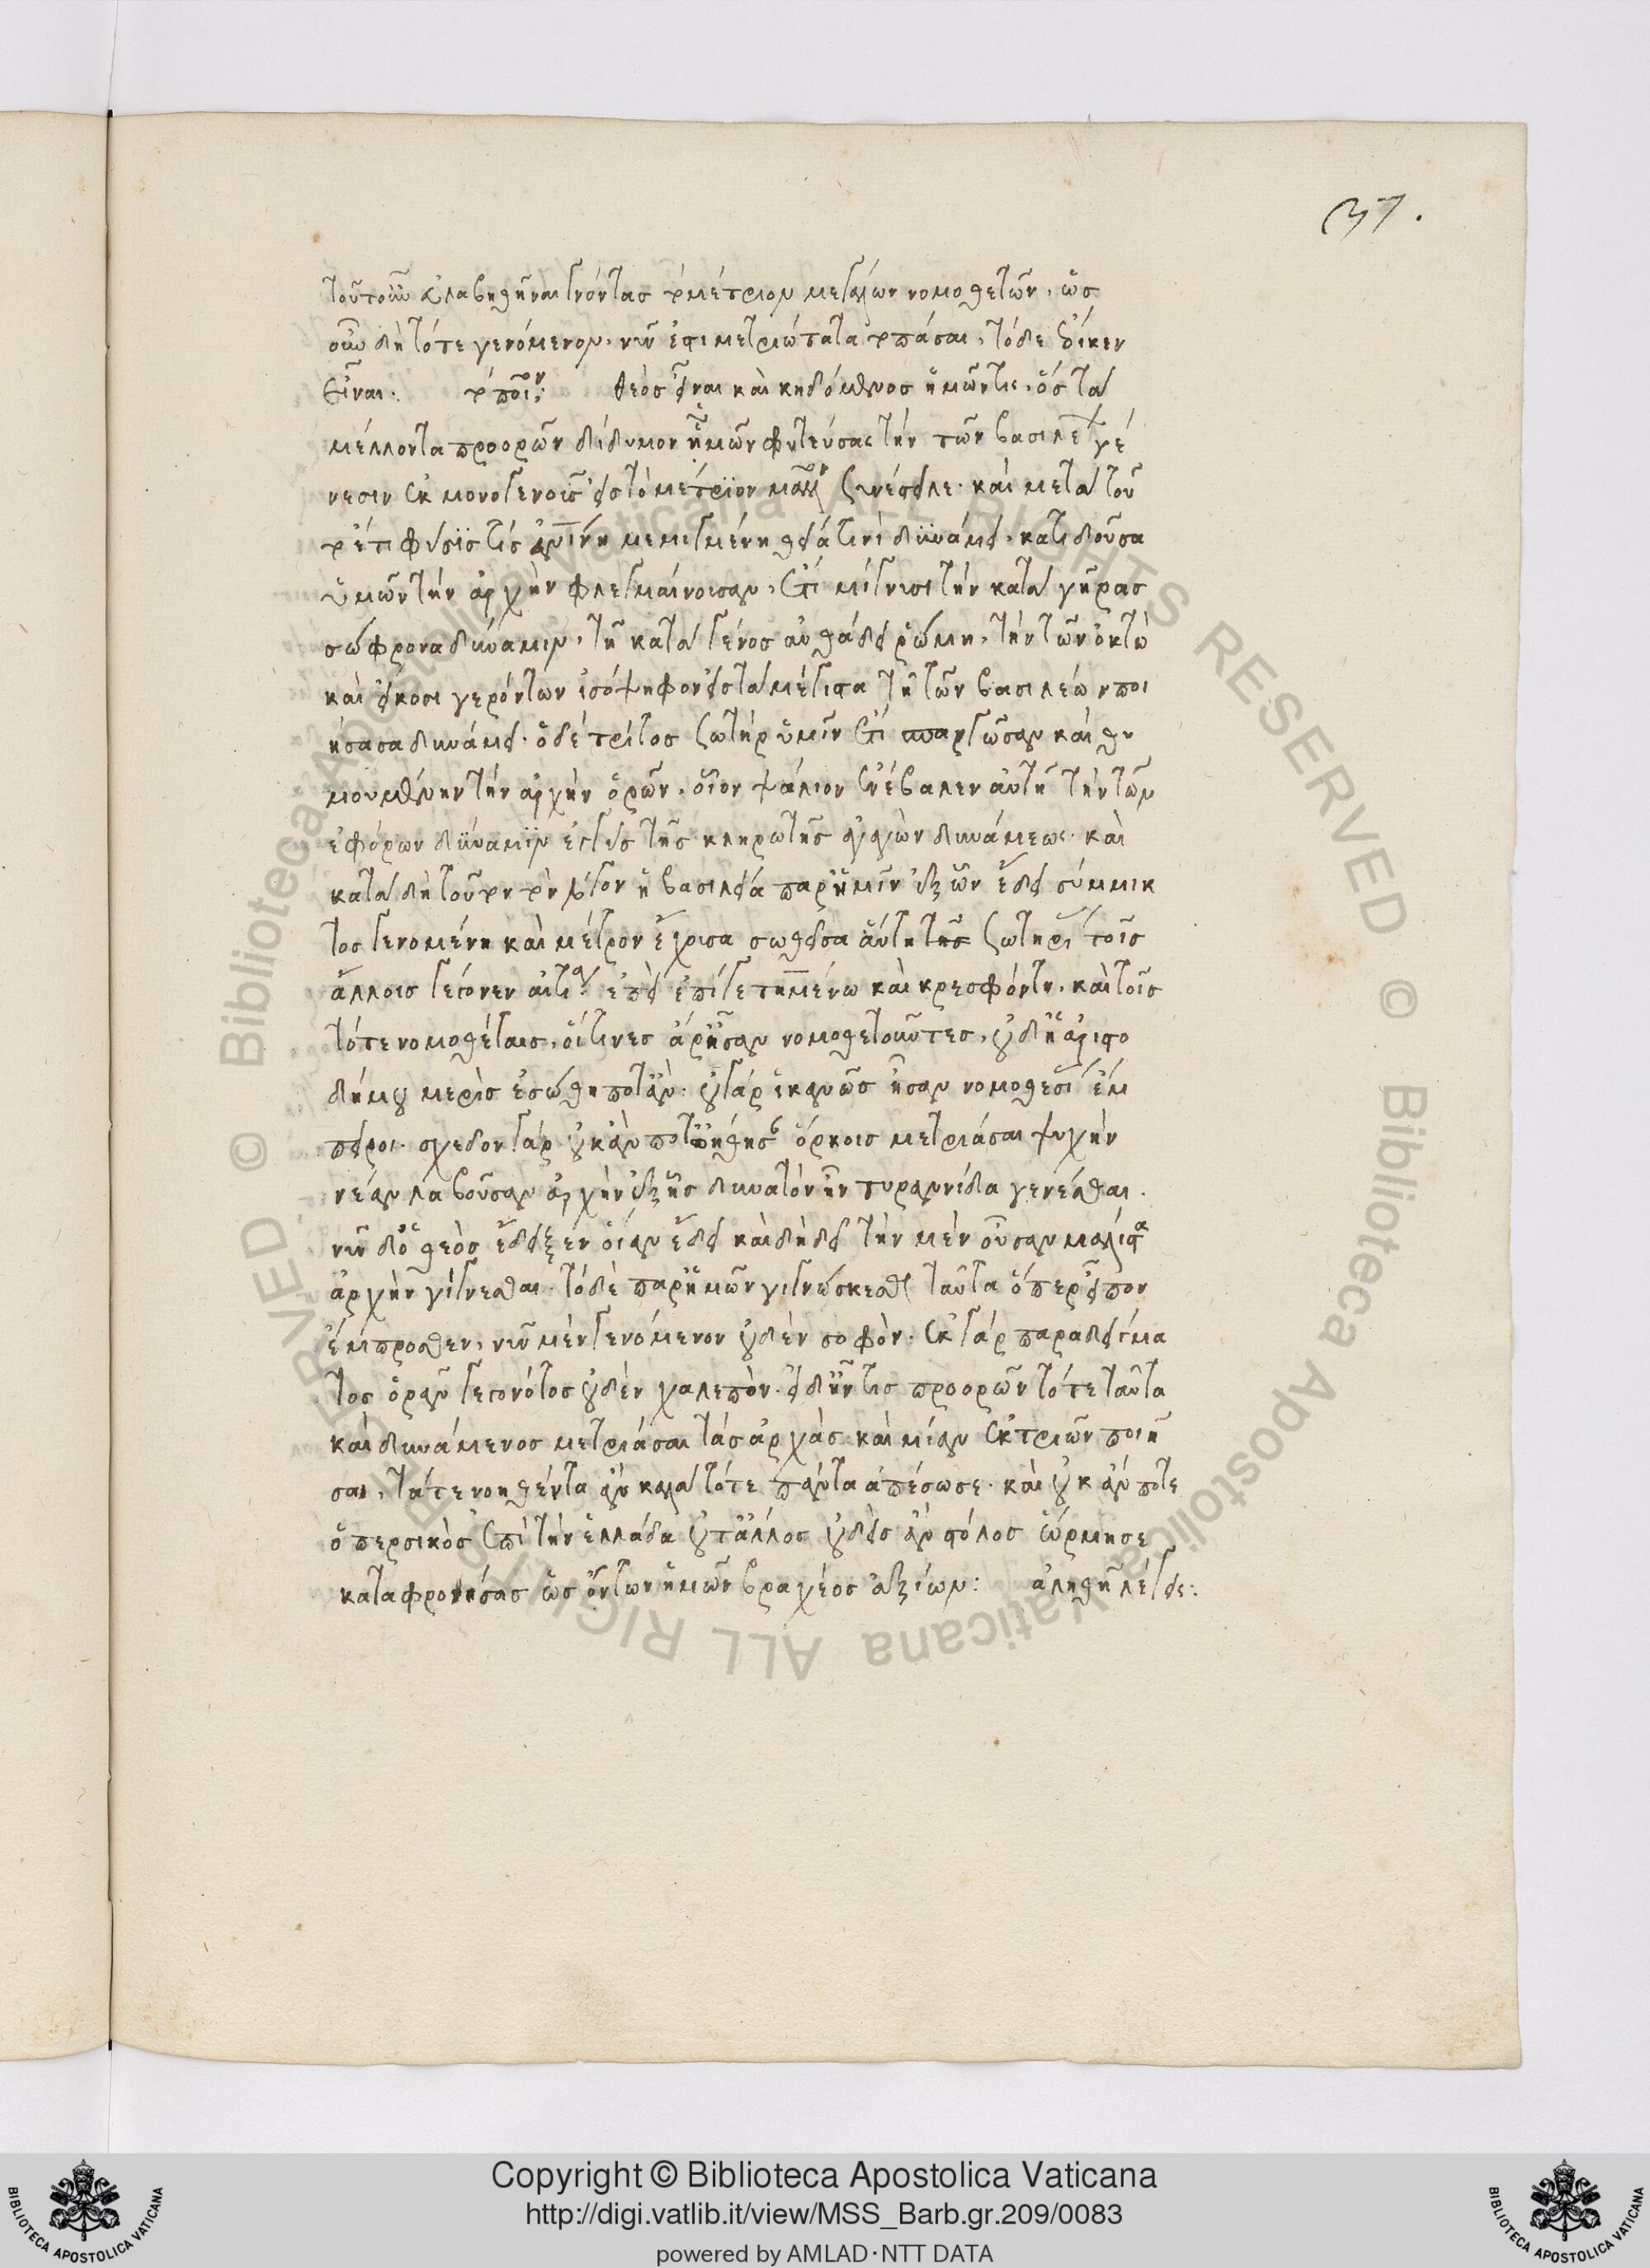 τοῦτουν εὐλαβηθῆναι γνόντας τὸ μέτριον μεγάλων νομοθετῶν. ὡς
οὖν δὴ τότε γενόμενον. νῦν ἐστι μετριώτατα τοπάσαι. τόδε ἔοικεν
εἶναι. τὸ ποῖον; θεὸς εἶναι καὶ κηδόμενος ἡμῶν τις. ὅς τὰ
μέλλοντα προορῶν δίδυμον ἡμῶν φυτεύσας τὴν τῶν βασιλέων γέ
νεσιν ἐκ μονογενοῦς εἰς τὸ μέτριον μᾶλλον συνέστειλε. καὶ μετὰ τοῦ
το ἔτι φύσις τίς ἀνθρωπίνη μεμιγμένη θεία τινὶ δυνάμει. κατιδοῦσα
ὑμῶν τὴν ἀρχὴν φλεγμαίνουσαν. ἔτι μίγνυσι τὴν κατὰ γῆρας
σώφρονα δύναμιν. τῆ κατὰ γένος αὐθάδει ῥώμη. τὴν τῶν ὀκτὼ
καὶ εἴκοσι γερόντων ἰσόψηφον εἰς τὰ μέγιστα τῆ τῶν βασιλέων ποι
ήσασα δυνάμει. ὁ δὲ τρίτος σωτὴρ ὑμῖν ἔτι σπαργῶσαν καὶ θυ
μουμένην τὴν ἀρχὴν ὁρῶν. οἷον ψάλιον ἐνέβαλεν αὐτῆ τὴν τῶν
ἐφόρων δύναμιν ἐγγὺς τῆς κληρωτῆς ἀγαγὼν δυνάμεως. καὶ
κατὰ δὴ τοῦτον τὸν λόγον ἡ βασιλεία παρ' ἡμῖν ἐξ ὧν ἔδει σύμμικ
τος γενομένη καὶ μέτρον ἔχουσα σωθεῖσα αὐτὴ τῆς σωτηρί τοῖς
ἄλλοις γέγονεν αἰτία. ἐπεὶ ἐπί γε τημένω καὶ κρεσφόντη. καὶ τοῖς
τότε νομοθέταις. οἵτινες ἄρ' ἦσαν νομοθετοῦντες. οὐδ' ἡ ἀριστο
δήμου μερὶς ἐσώθη ποτ' ἄν. οὐ γὰρ ἱκανῶς ἦσαν νομοθεσί ἔμ
πειροι. σχεδὸν γὰρ οὐκ ἄν ποτ' ᾠήθησαν ὅρκοις μετριάσαι ψυχὴν
νέαν λαβοῦσαν ἀρχὴν ἐξ ἧς δυνατὸν ἦν τυραννίδα γενέσθαι.
νῦν δ' ὁ θεὸς ἔδειξεν οἵαν ἔδει καὶ δὴ δεῖ τὴν μένουσαν μάλιστα
ἀρχὴν γίγνεσθαι. τὸ δὲ παρ' ἡμῶν γιγνώσκεσθαι ταῦτα ὅπερ εἶπον
ἔμπροσθεν. νῦν μὲν γενόμενον οὐδὲν σοφὸν. ἐκ γὰρ παραδείγμα
τος ὁρᾶν γεγονότος οὐδὲν χαλεπὸν. εἰ δ' ἦν τις προορῶν τότε ταῦτα
καὶ δυνάμενος μετριάσαι τὰς ἀρχὰς καὶ μίαν ἐκ τριῶν ποιῆ
σαι. τά τε νοηθέντα ἂν καλὰ τότε πάντα ἀπέσωσε. καὶ οὐκ ἄν ποτε
ὁ περσικὸς ἐπὶ τὴν ἑλλάδα οὐτ' ἄλλος οὐδεὶς ἂν στόλος ὥρμησε
καταφρονήσας ὡς ὄντων ἡμῶν βραχέος ἀξίων: ἀληθῆ λέγεις:
37.
Copyright © Biblioteca Apostolica Vaticana
http://digi.vatlib.it/view/MSS_Barb.gr.209/0083
powered by AMLAD·NTT DATA
BIBLIOTECA APOSTOLICA VATICANA
BIBLIOTECA APOSTOLICA VATICANA
© Biblioteca Apostolica Vaticana ALL RIGHTS RESERVED
© Biblioteca Apostolica Vaticana ALL RIGHTS RESERVED